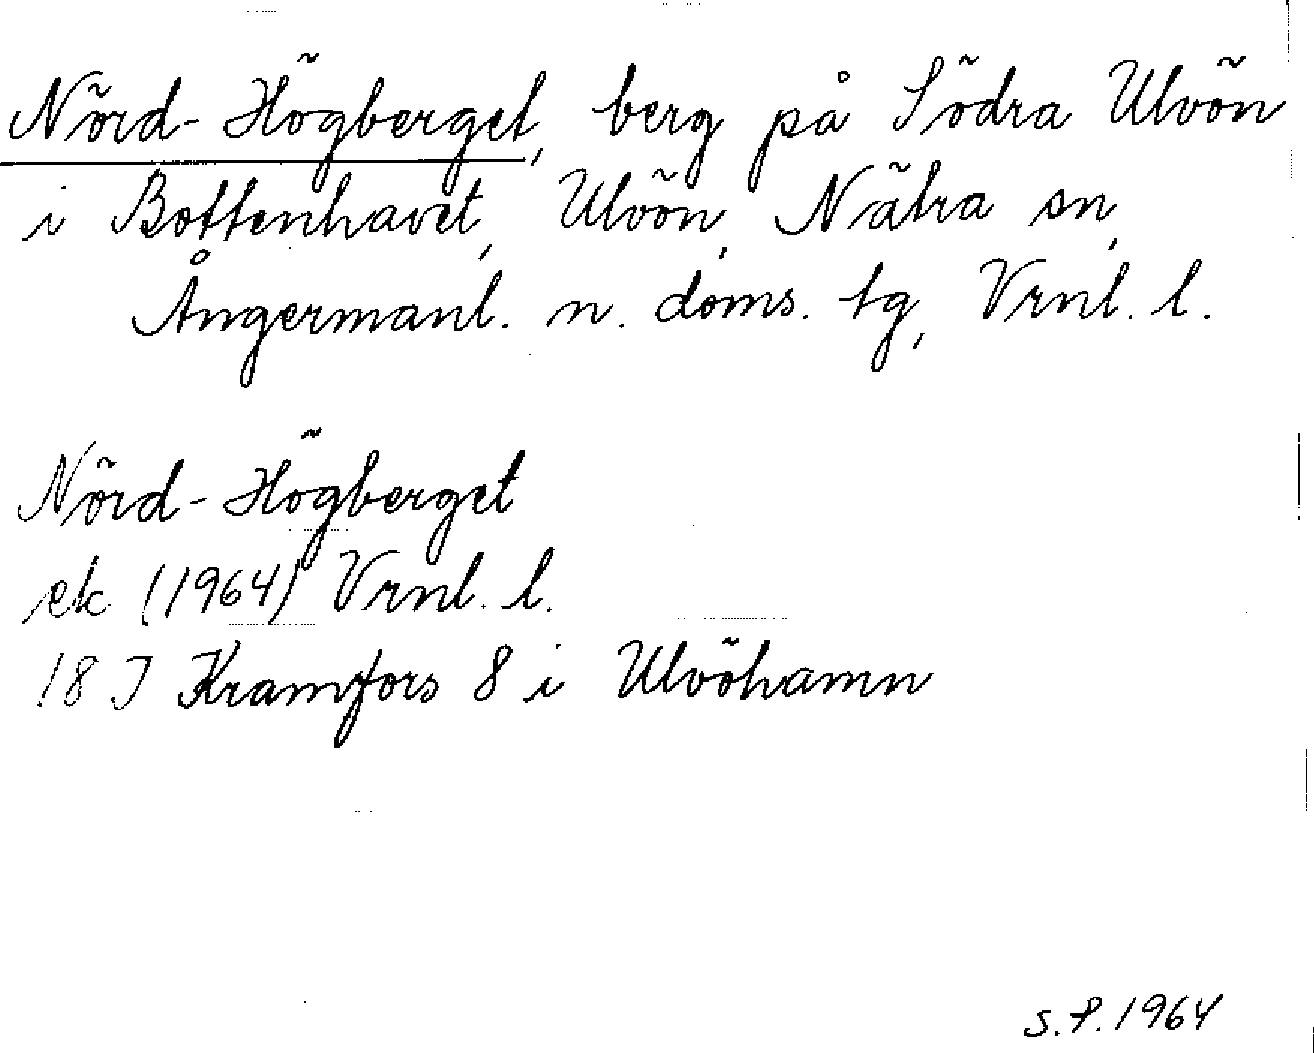 Nörd-Högberget, berg på Södra Ulvön
i Bottenhavet, Ulvön, Nätra sn,
Ångermanl. n. doms. tg, Vrnl. l.
Nörd-Högberget
ek (1964) Vrnl. l.
18 J Kramfors 8 i Ulvöhamn
S.P. 1964